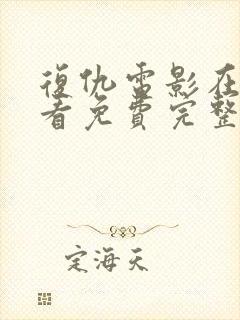 復仇雷影在
看免費完整
定海天